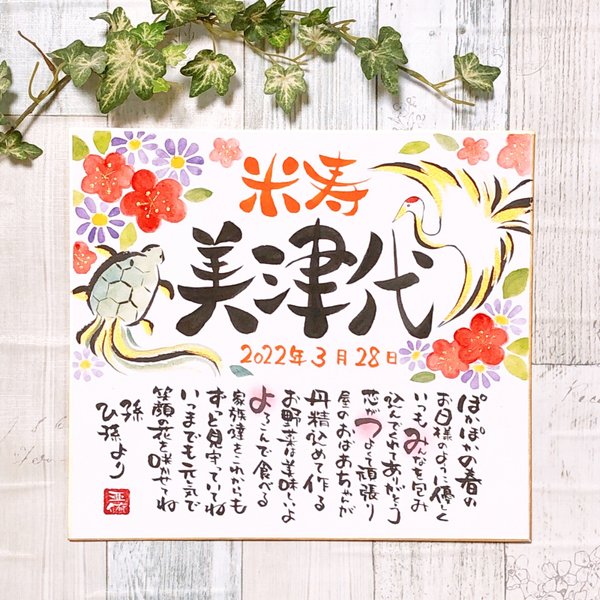 米寿
美津代
2022年3月28日
ぽかぽかの春の
お日様のように優しく
いつもみんなを包み
込んでくれてありがとう
芯がつよくて頑張り
屋のおばあちゃんが
丹精込めて作る
お野菜は美味しいよ
よろこんで食べる
家族達をこれからも
ずっと見守っていてね
いつまでも元気で
笑顔の花を咲かせてね
孫
ひ孫より